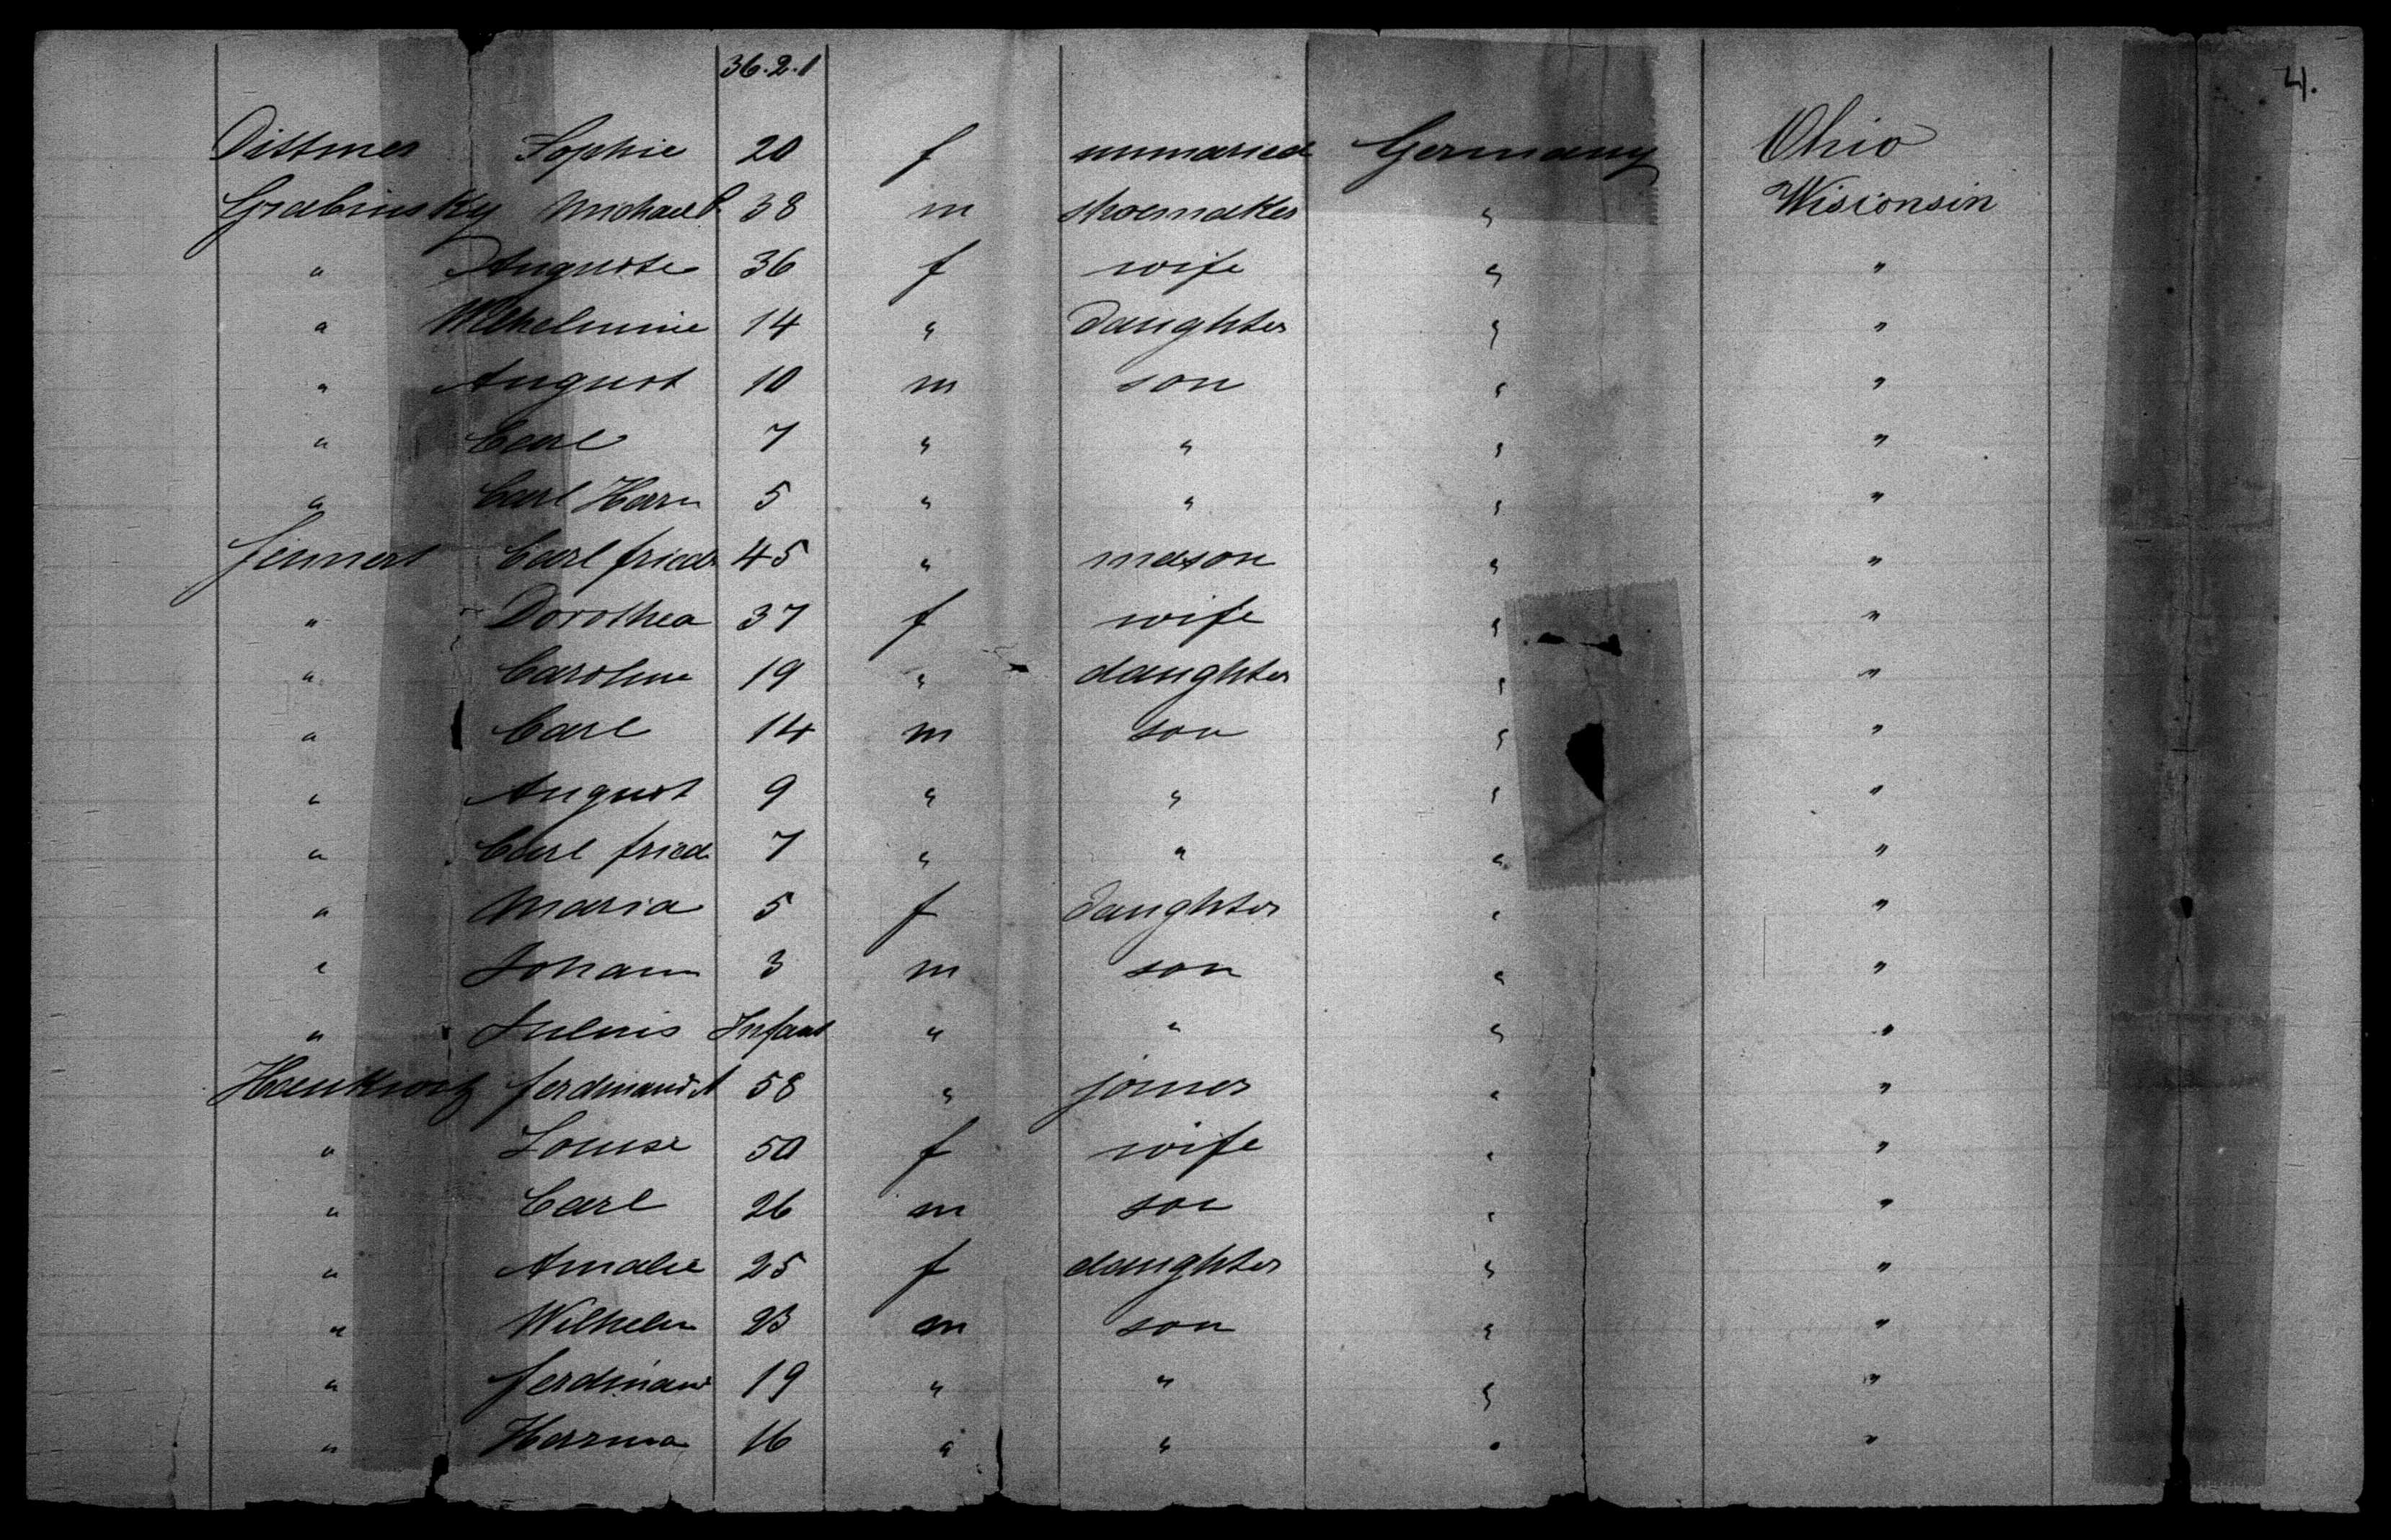 36.2.1
4.
Dittmer Sophie 20 f unmaried Germany Ohio
Grabinsky Michael P. 38 m shoemaker " Wisconsin
" Auguste 36 f wife " "
" Wilhelmine 14 " daughter " "
" August 10 m son " "
" Carl 7 " " " "
" Carl Herm 5 " " " "
Finnert Carl friedr 45 " mason " "
" Dorothea 37 f wife " "
" Caroline 19 " daughter " "
" Carl 14 m son " "
" August 9 " " " "
" Carl fried 7 " " " "
" Maria 5 f daughter " "
" Johann 3 m son " "
" Julius Infant " " " "
ferdinand A 58 " joiner " "
" Louise 50 f wife " "
" Carl 26 m son " "
" Amalie 25 f daughter " "
" Wilhelm 23 m son " "
" ferdinand 19 " " " "
" Herrma 16 " " " "